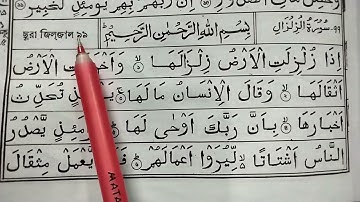 اِنَّ رَبَّهُمْ بِهِمْ يَوْمَئِذٍ لَّخَبِيْرٌ
٩٩ سُوْرَةُ الزِّلْزَالِ بِسْمِ اللّٰهِ الرَّحْمٰنِ الرَّحِيْمِ ছুরা জিলজাল ৯৯
اِذَا زُلْزِلَتِ الْاَرْضُ زِلْزَالَهَا وَاَخْرَجَتِ الْاَرْضُ
اَثْقَالَهَا وَقَالَ الْاِنْسَانُ مَا لَهَا يَوْمَئِذٍ تُحَدِّثُ
اَخْبَارَهَا بِاَنَّ رَبَّكَ اَوْحٰى لَهَا يَوْمَئِذٍ يَّصْدُرُ
النَّاسُ اَشْتَاتًا لِّيُرَوْا اَعْمَالَهُمْ فَمَنْ يَّعْمَلْ مِثْقَالَ
MATA